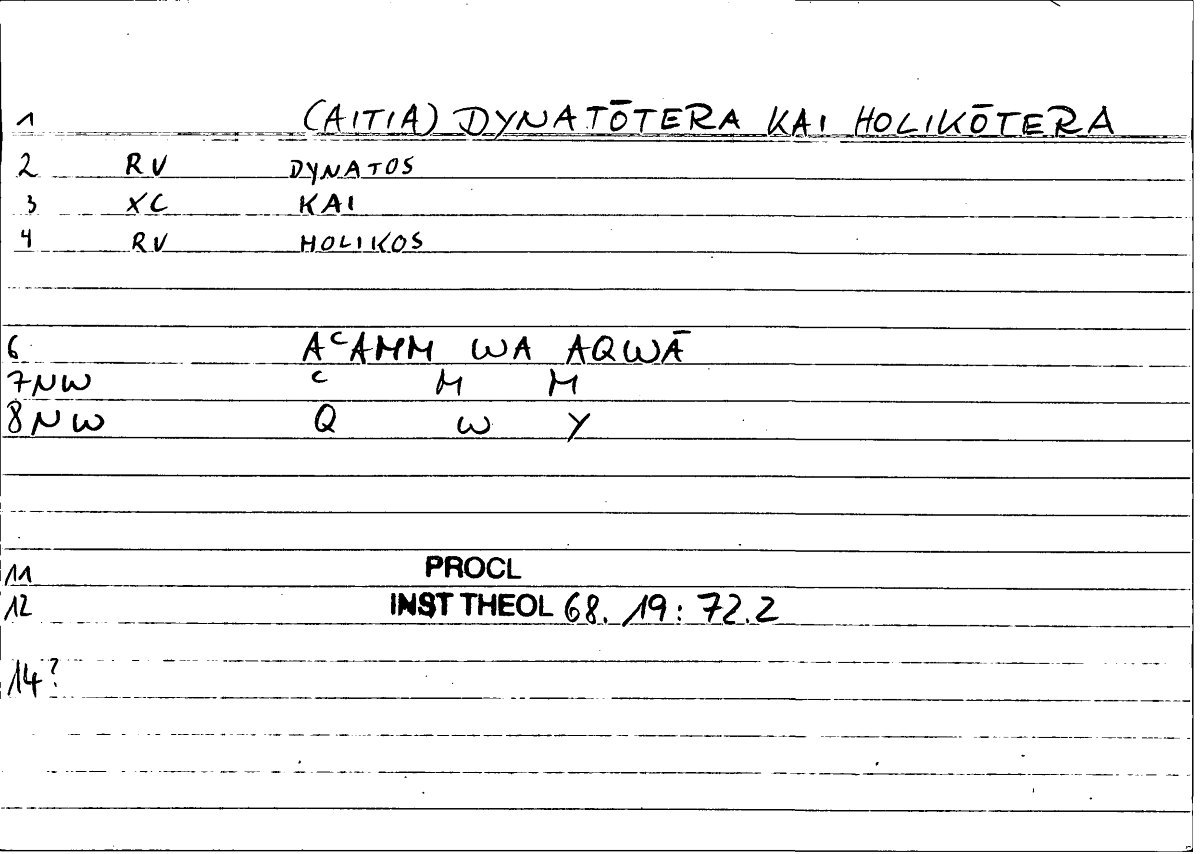 1 (AITIA) DYNATŌTERA KAI HOLIKŌTERA
2 RV DYNATOS
3 XC KAI
4 RV HOLIKOS
6 AᶜAMM WA AQWĀ
7NW ᶜ M M
8NW Q W Y
11 PROCL
12 INST THEOL 68. 19: 72.2
14?